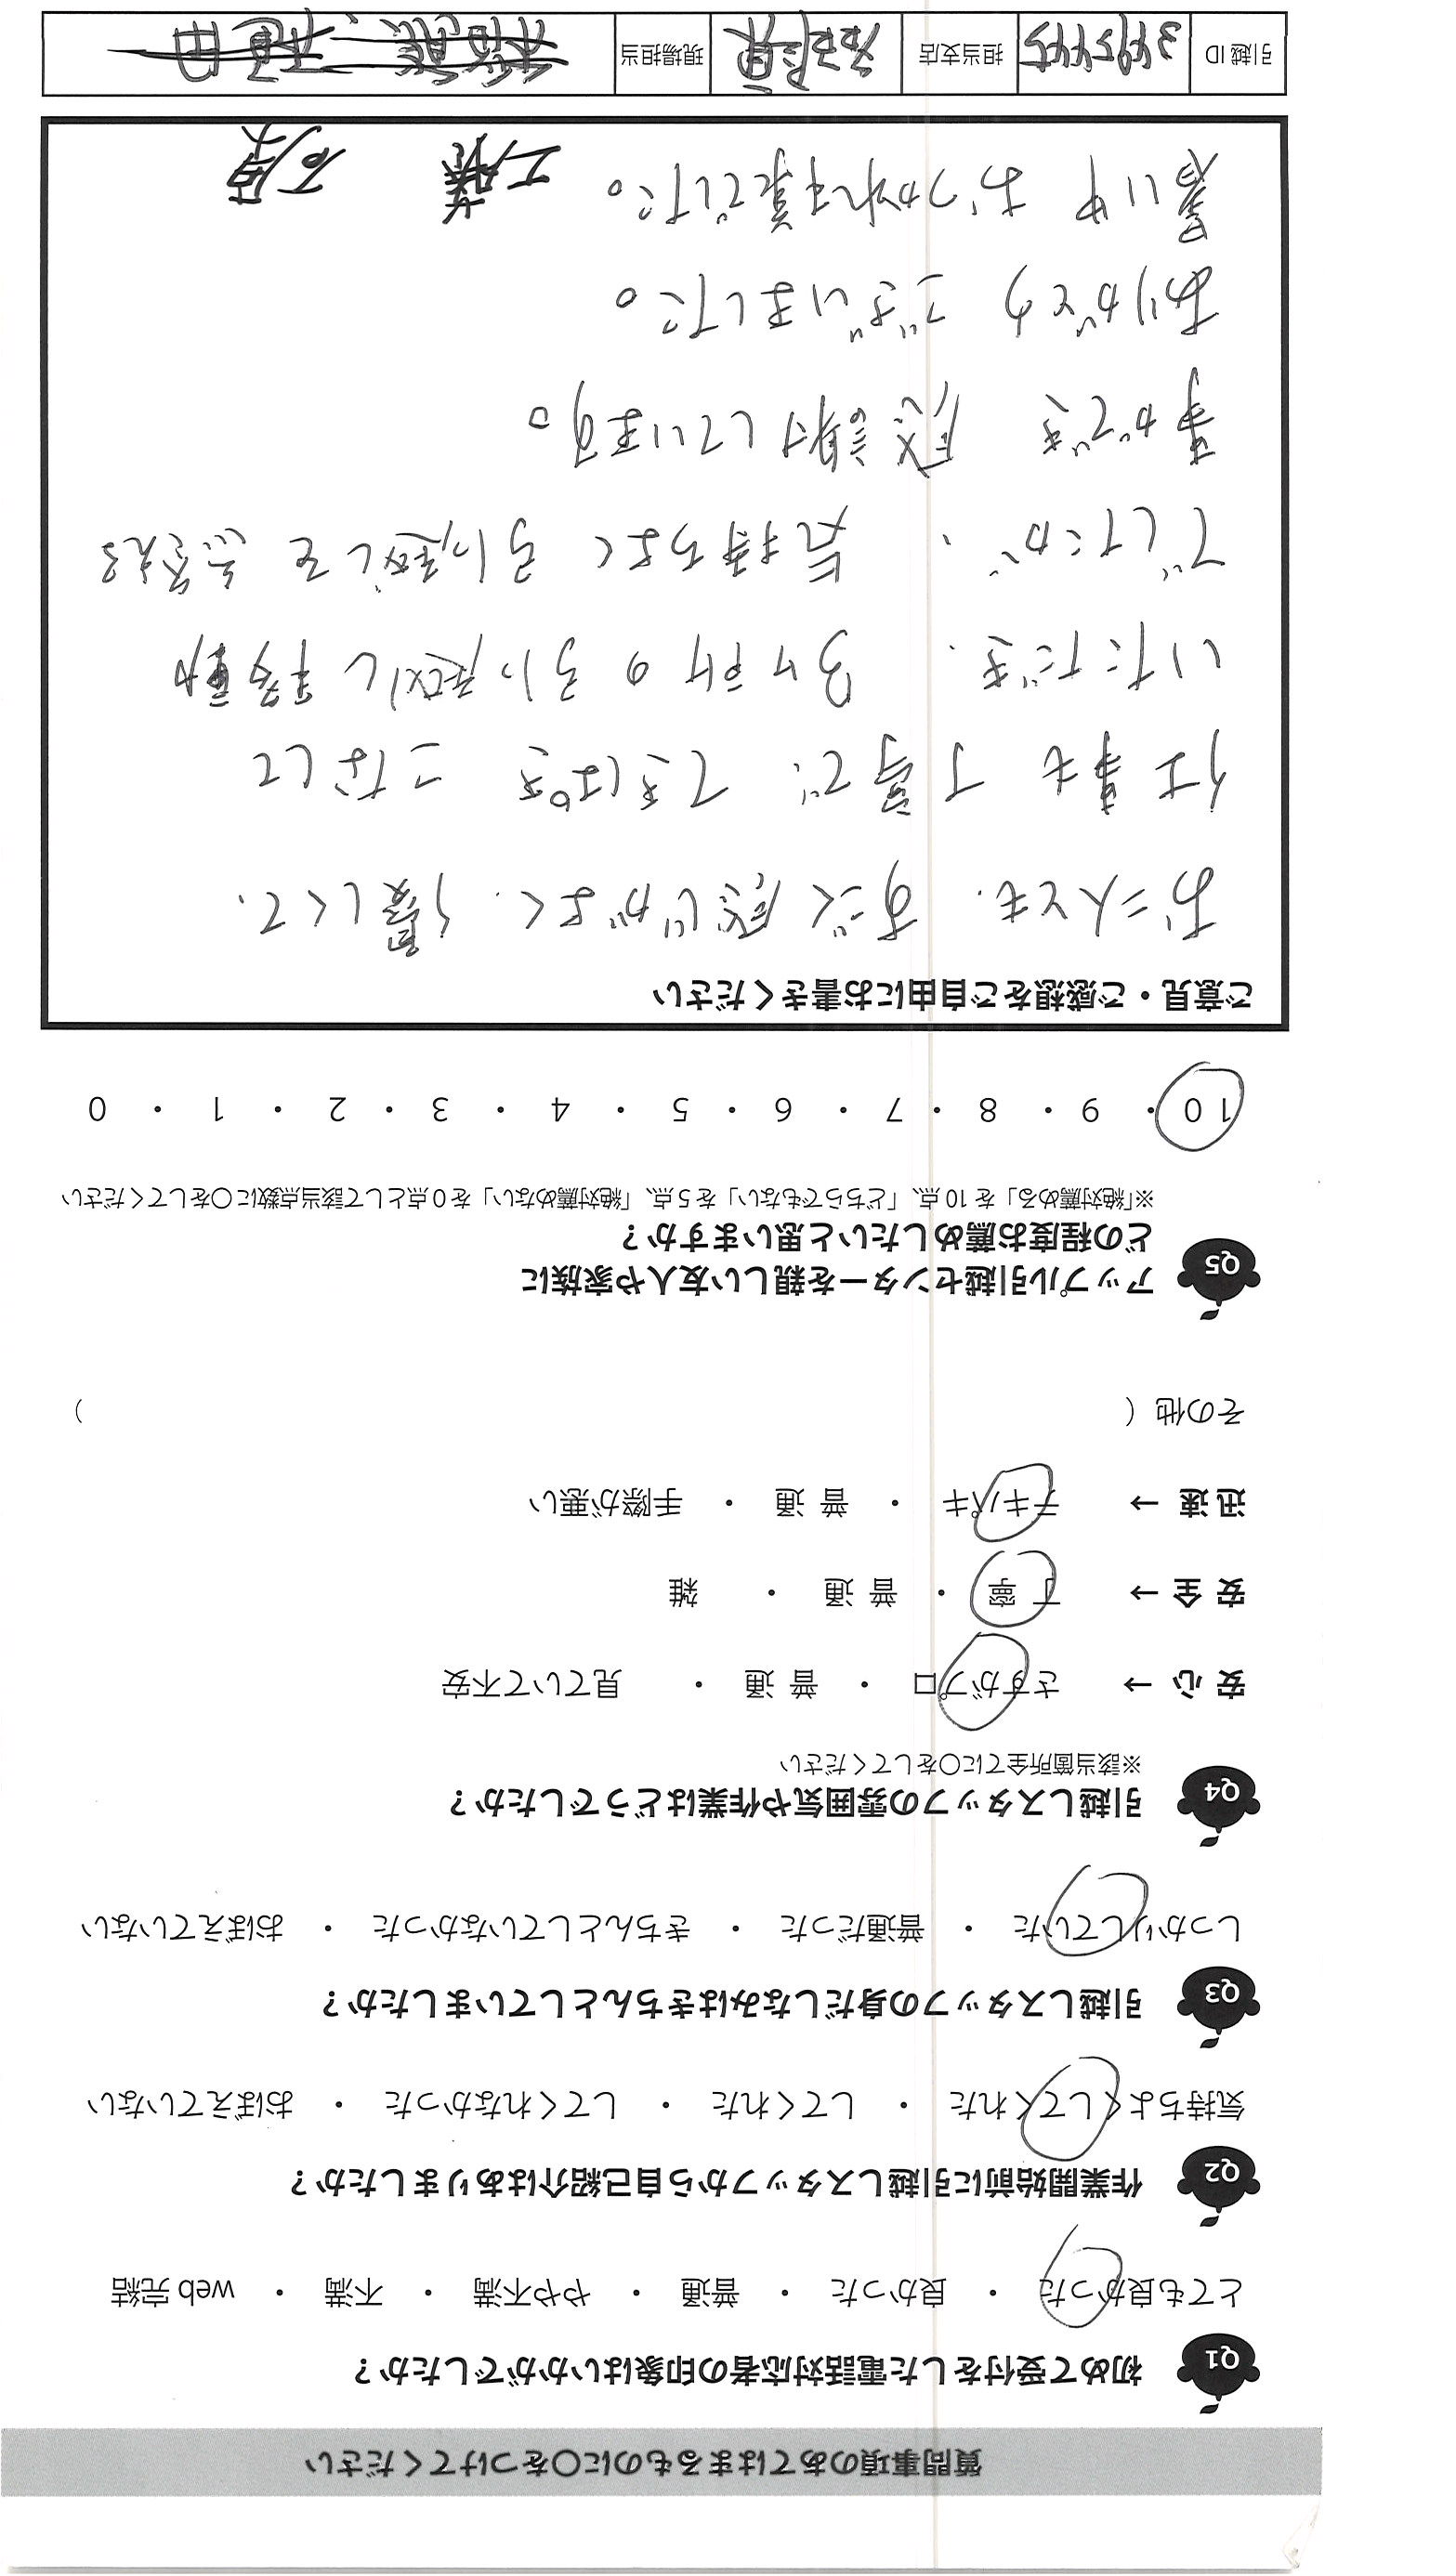 質問事項のあてはまるものに○をつけてください
Q1 初めて受付をした電話対応者の印象はいかがでしたか？
とても良かった ・ 良かった ・ 普通 ・ やや不満 ・ 不満 ・ web 完結
Q2 作業開始前に引越しスタッフから自己紹介はありましたか？
気持ちよくしてくれた ・ してくれた ・ してくれなかった ・ おぼえていない
Q3 引越しスタッフの身だしなみはきちんとしていましたか？
しっかりしていた ・ 普通だった ・ きちんとしていなかった ・ おぼえていない
Q4 引越しスタッフの雰囲気や作業はどうでしたか？
※該当箇所全てに○をしてください
安 心 → さすがプロ ・ 普 通 ・ 見ていて不安
安 全 → 丁 寧 ・ 普 通 ・ 雑
迅 速 → テキパキ ・ 普 通 ・ 手際が悪い
その他（ ）
Q5 アップル引越センターを親しい友人や家族に
どの程度お薦めしたいと思いますか？
※「絶対薦める」を 10 点、「どちらでもない」を 5 点、「絶対薦めない」を 0 点として該当点数に○をしてください
10 ・ 9 ・ 8 ・ 7 ・ 6 ・ 5 ・ 4 ・ 3 ・ 2 ・ 1 ・ 0
ご意見・ご感想をご自由にお書きください
お二人とも、すごく感じがよく、優しくて、
仕事も丁寧で、てきぱき こなして
いただき、3ヶ所の引い越し移動
でしたが、気持ちよく引い越しを終える
事ができ 感謝しています。
ありがとう ございました。
暑い中 おつかれ様でした。
工藤 石原
引越 ID 担当支店 現場担当